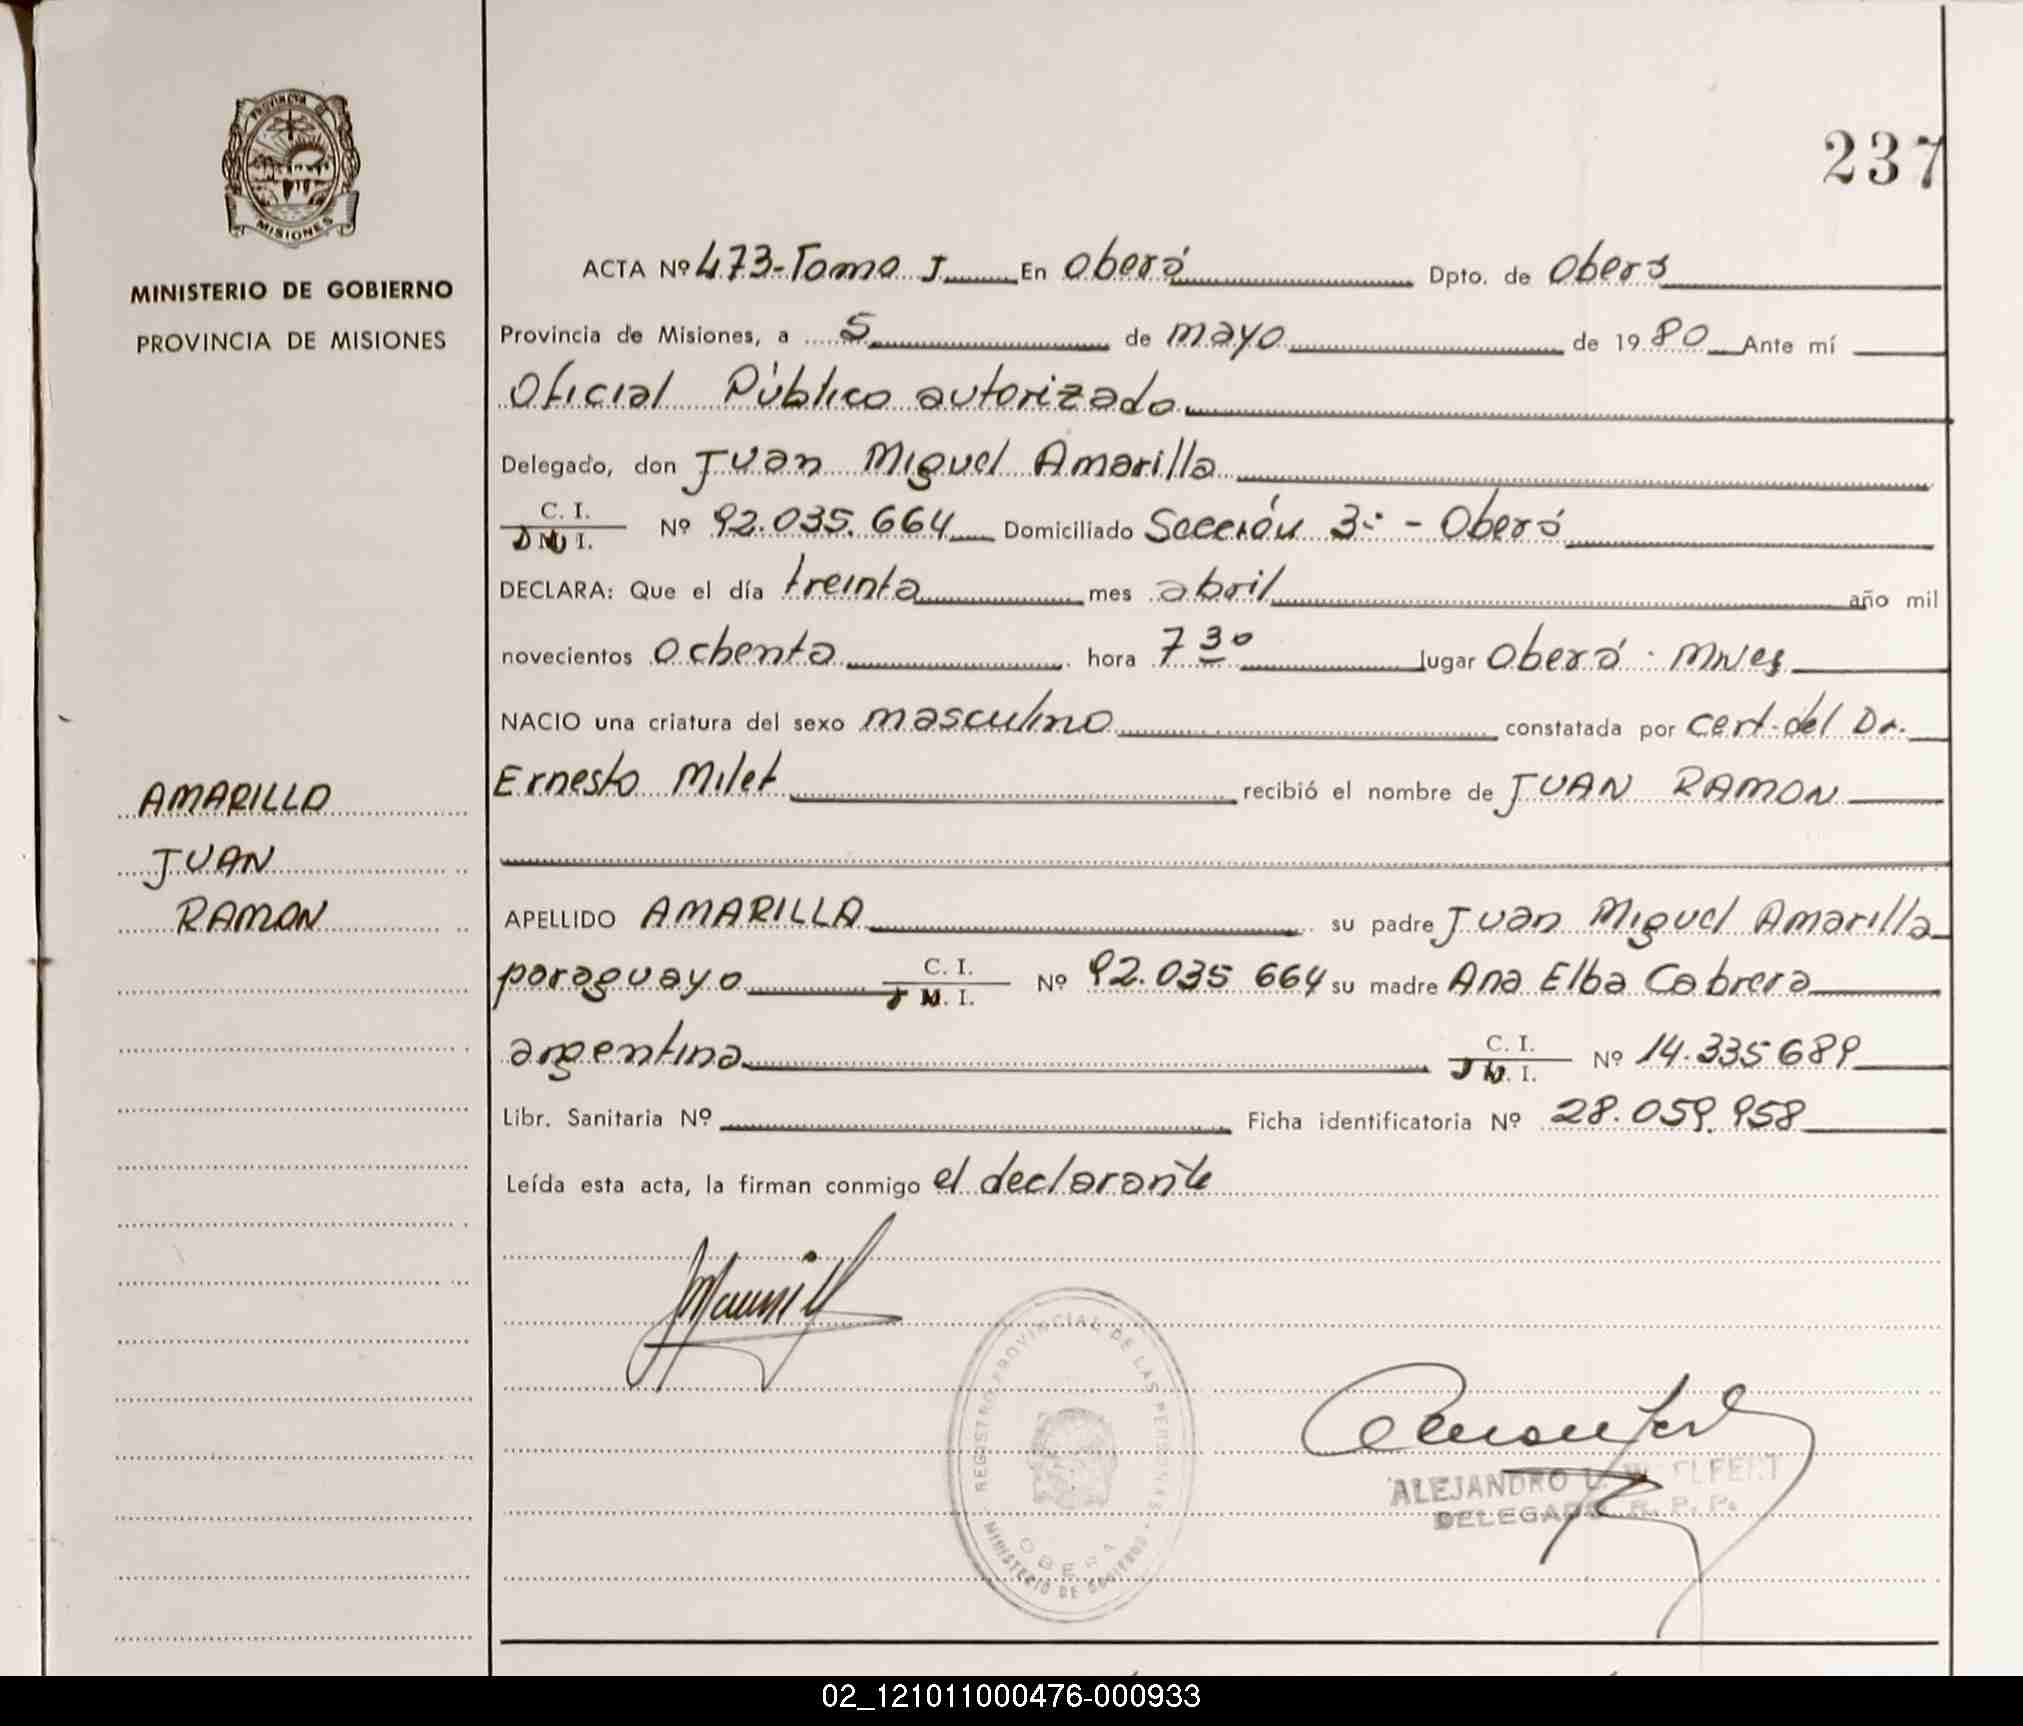 237
PROVINCIA DE
MISIONES
MINISTERIO DE GOBIERNO
PROVINCIA DE MISIONES
ACTA Nº 473-Tomo I En Oberá Dpto. de Oberá
Provincia de Misiones, a 5 de mayo de 1980 Ante mí
Oficial Público autorizado
Delegado, don Juan Miguel Amarilla
C. I.
D N I. Nº 92.035.664 Domiciliado Sección 3ª - Oberá
DECLARA: Que el día treinta mes abril año mil
novecientos ochenta hora 7 30 lugar Oberá - Mnes
NACIO una criatura del sexo masculino constatada por cert. del Dr.
Ernesto Milet recibió el nombre de JUAN RAMON
AMARILLA
JUAN
RAMON
APELLIDO AMARILLA su padre Juan Miguel Amarilla
paraguayo C. I. Nº 92.035 664 su madre Ana Elba Cabrera
D N. I.
argentina C. I. Nº 14.335 689
D N. I.
Libr. Sanitaria Nº Ficha identificatoria Nº 28.059.958
Leída esta acta, la firman conmigo el declarante
REGISTRO PROVINCIAL DE LAS PERSONAS
OBERA
MINISTERIO DE GOBIERNO
ALEJANDRO
DELEGADO R. P. P.
02_121011000476-000933